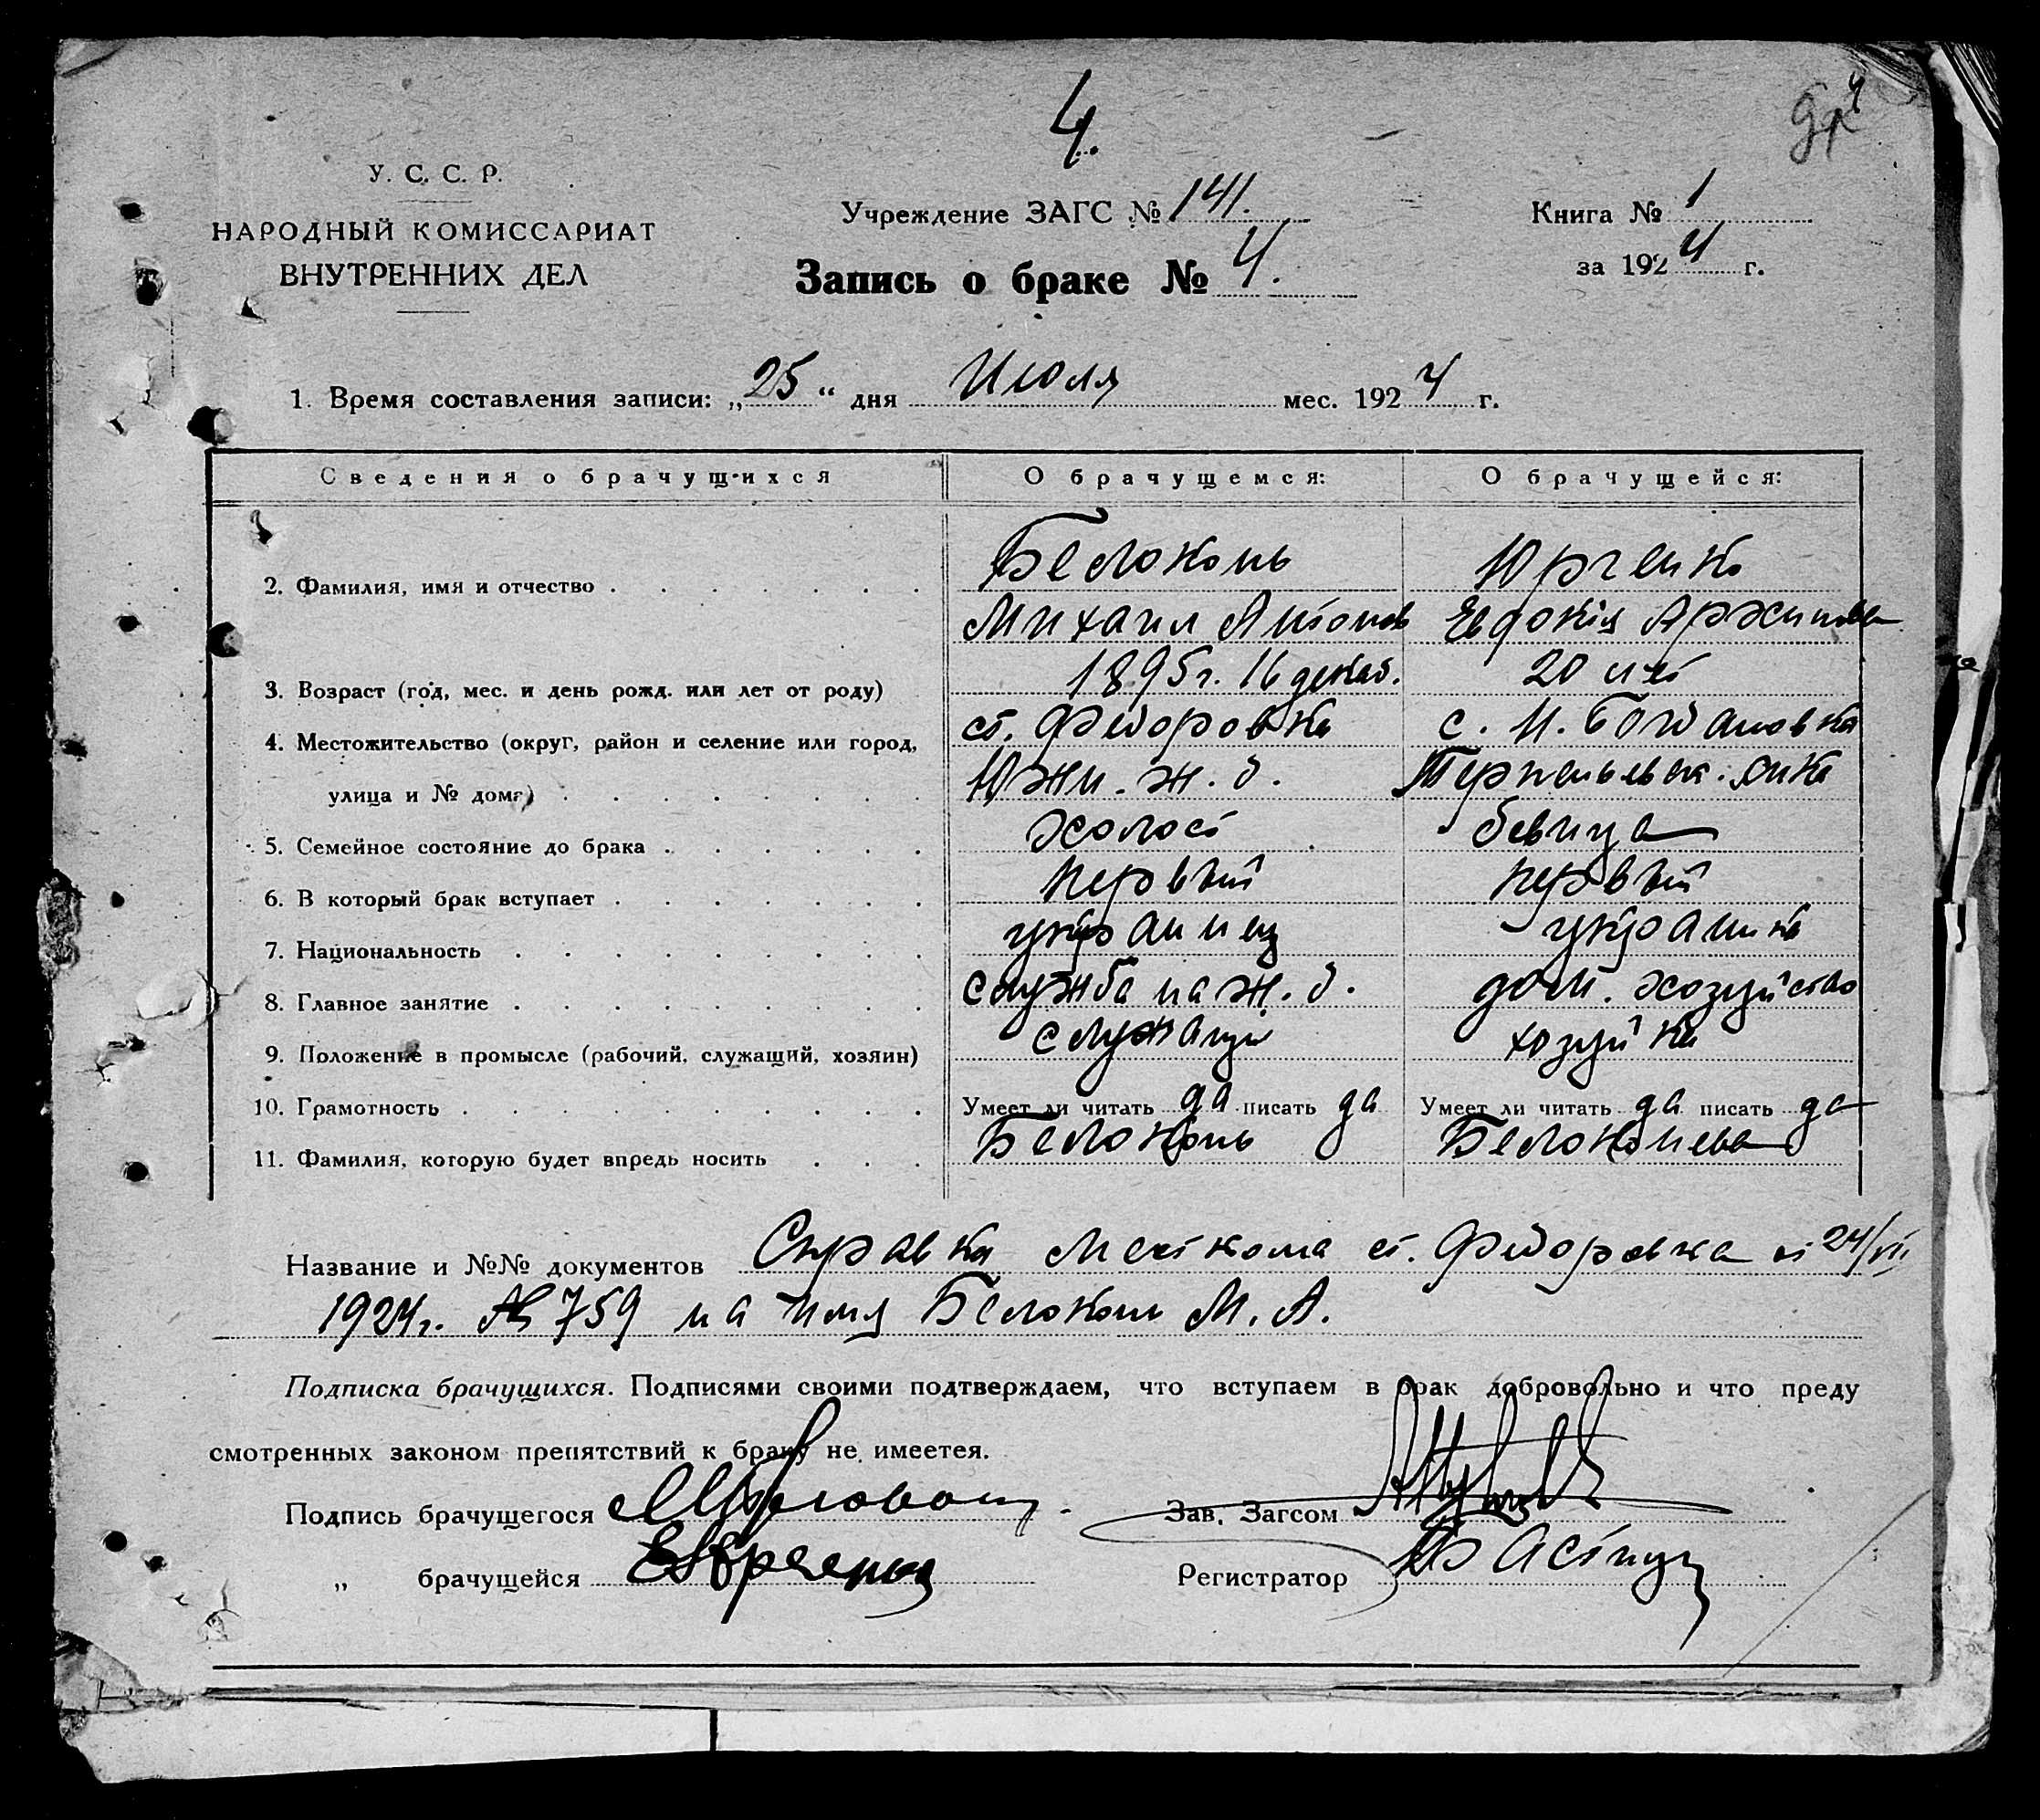 4.
4
У. С. С. Р.
НАРОДНЫЙ КОМИССАРИАТ
ВНУТРЕННИХ ДЕЛ
Учреждение ЗАГС № 141.
Запись о браке № 4.
Книга № 1
за 1924 г.
1. Время составления записи: „25“ дня Июля мес. 1924 г.
Сведения о брачущихся О брачущемся: О брачущейся:
2. Фамилия, имя и отчество Белоконь Юрченко
Михаил Антонов Евдокия Архипова
3. Возраст (год, мес. и день рожд. или лет от роду) 1895г. 16 декаб. 20 лет
4. Местожительство (округ, район и селение или город, ст. Федоровка с. Н. Богдановка
улица и № дома) Южн. ж. д. Терпеньевск.
5. Семейное состояние до брака холост девица
6. В который брак вступает первый первый
7. Национальность украинец украинка
8. Главное занятие служба на ж. д. дом. хозяйство
9. Положение в промысле (рабочий, служащий, хозяин) служащий хозяйка
10. Грамотность Умеет ли читать да писать да Умеет ли читать да писать да
11. Фамилия, которую будет впредь носить Белоконь Белоконева
Название и №№ документов Справка Месткома ст. Федоровка от 24/VII
1924г. № 759 на имя Белоконь М. А.
Подписка брачущихся. Подписями своими подтверждаем, что вступаем в брак добровольно и что преду
смотренных законом препятствий к браку не имеетея.
Подпись брачущегося МБелоконь Зав. Загсом
„ брачущейся ЕЮрченко Регистратор